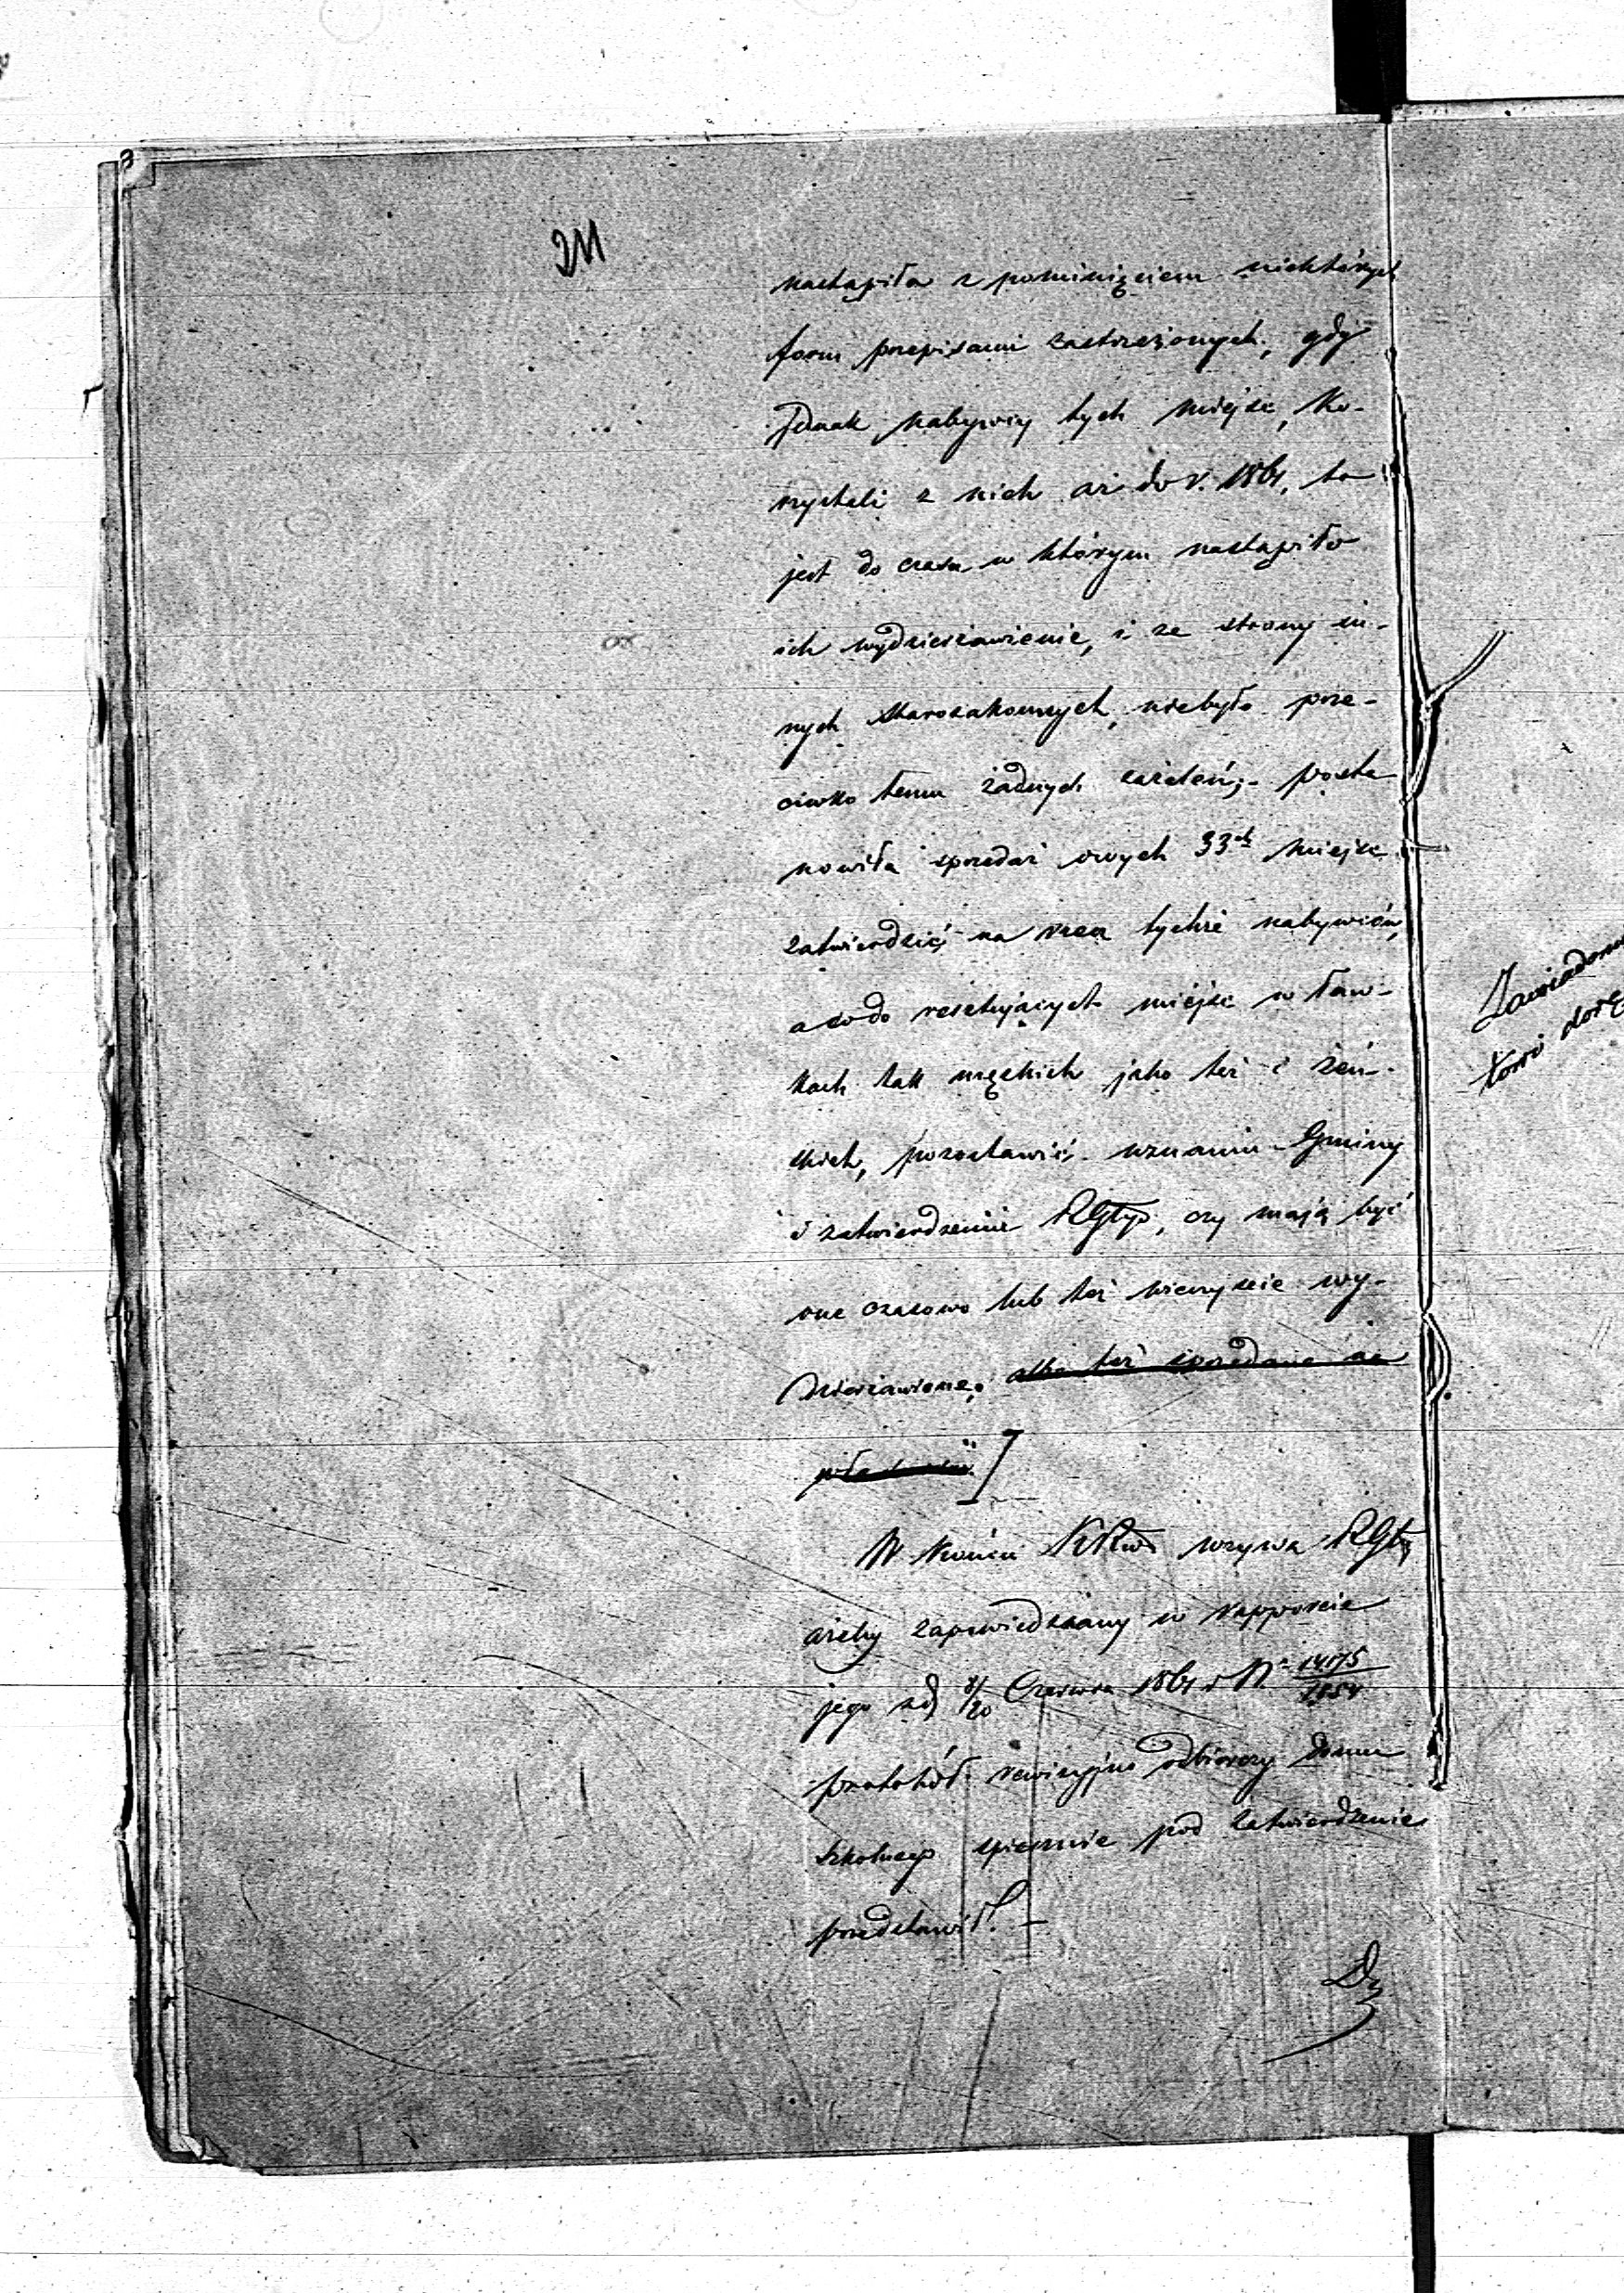 211
nastąpiła z pominięciem niektórych
form przepisami zastrzeżonych, gdy
jednak nabywcy tych miejsc, ko-
rzystali z nich aż do r. 1861, to
jest do czasu w którym nastąpiło
ich wydzierżawienie, i ze strony in-
nych starozakonnych, niebyło prze-
ciwko temu żadnych zażaleń; posta
nowiła sprzedaż owych 33ch miejsc
zatwierdzić, na rzecz tychże nabywców,
a co do resztujących miejsc w ław-
kach tak męzkich jako też i żeń-
skich, pozostawić uznaniu Gminy
i zatwierdzeniu RGtyo, czy mają być
one czasowo lub też wieczyście wy-
dzierżawione, albo też sprzedane na
własność]
W końcu KRw wzywa RGty
ażeby zapowiedziany w rapporcie
jego z d. 8/20 Czerwca 1861 r N°
protokół rewizyjno odbiorczy domu
szkolnego spiesznie pod zatwierdzenie
przedstawił. –
Zawiadom